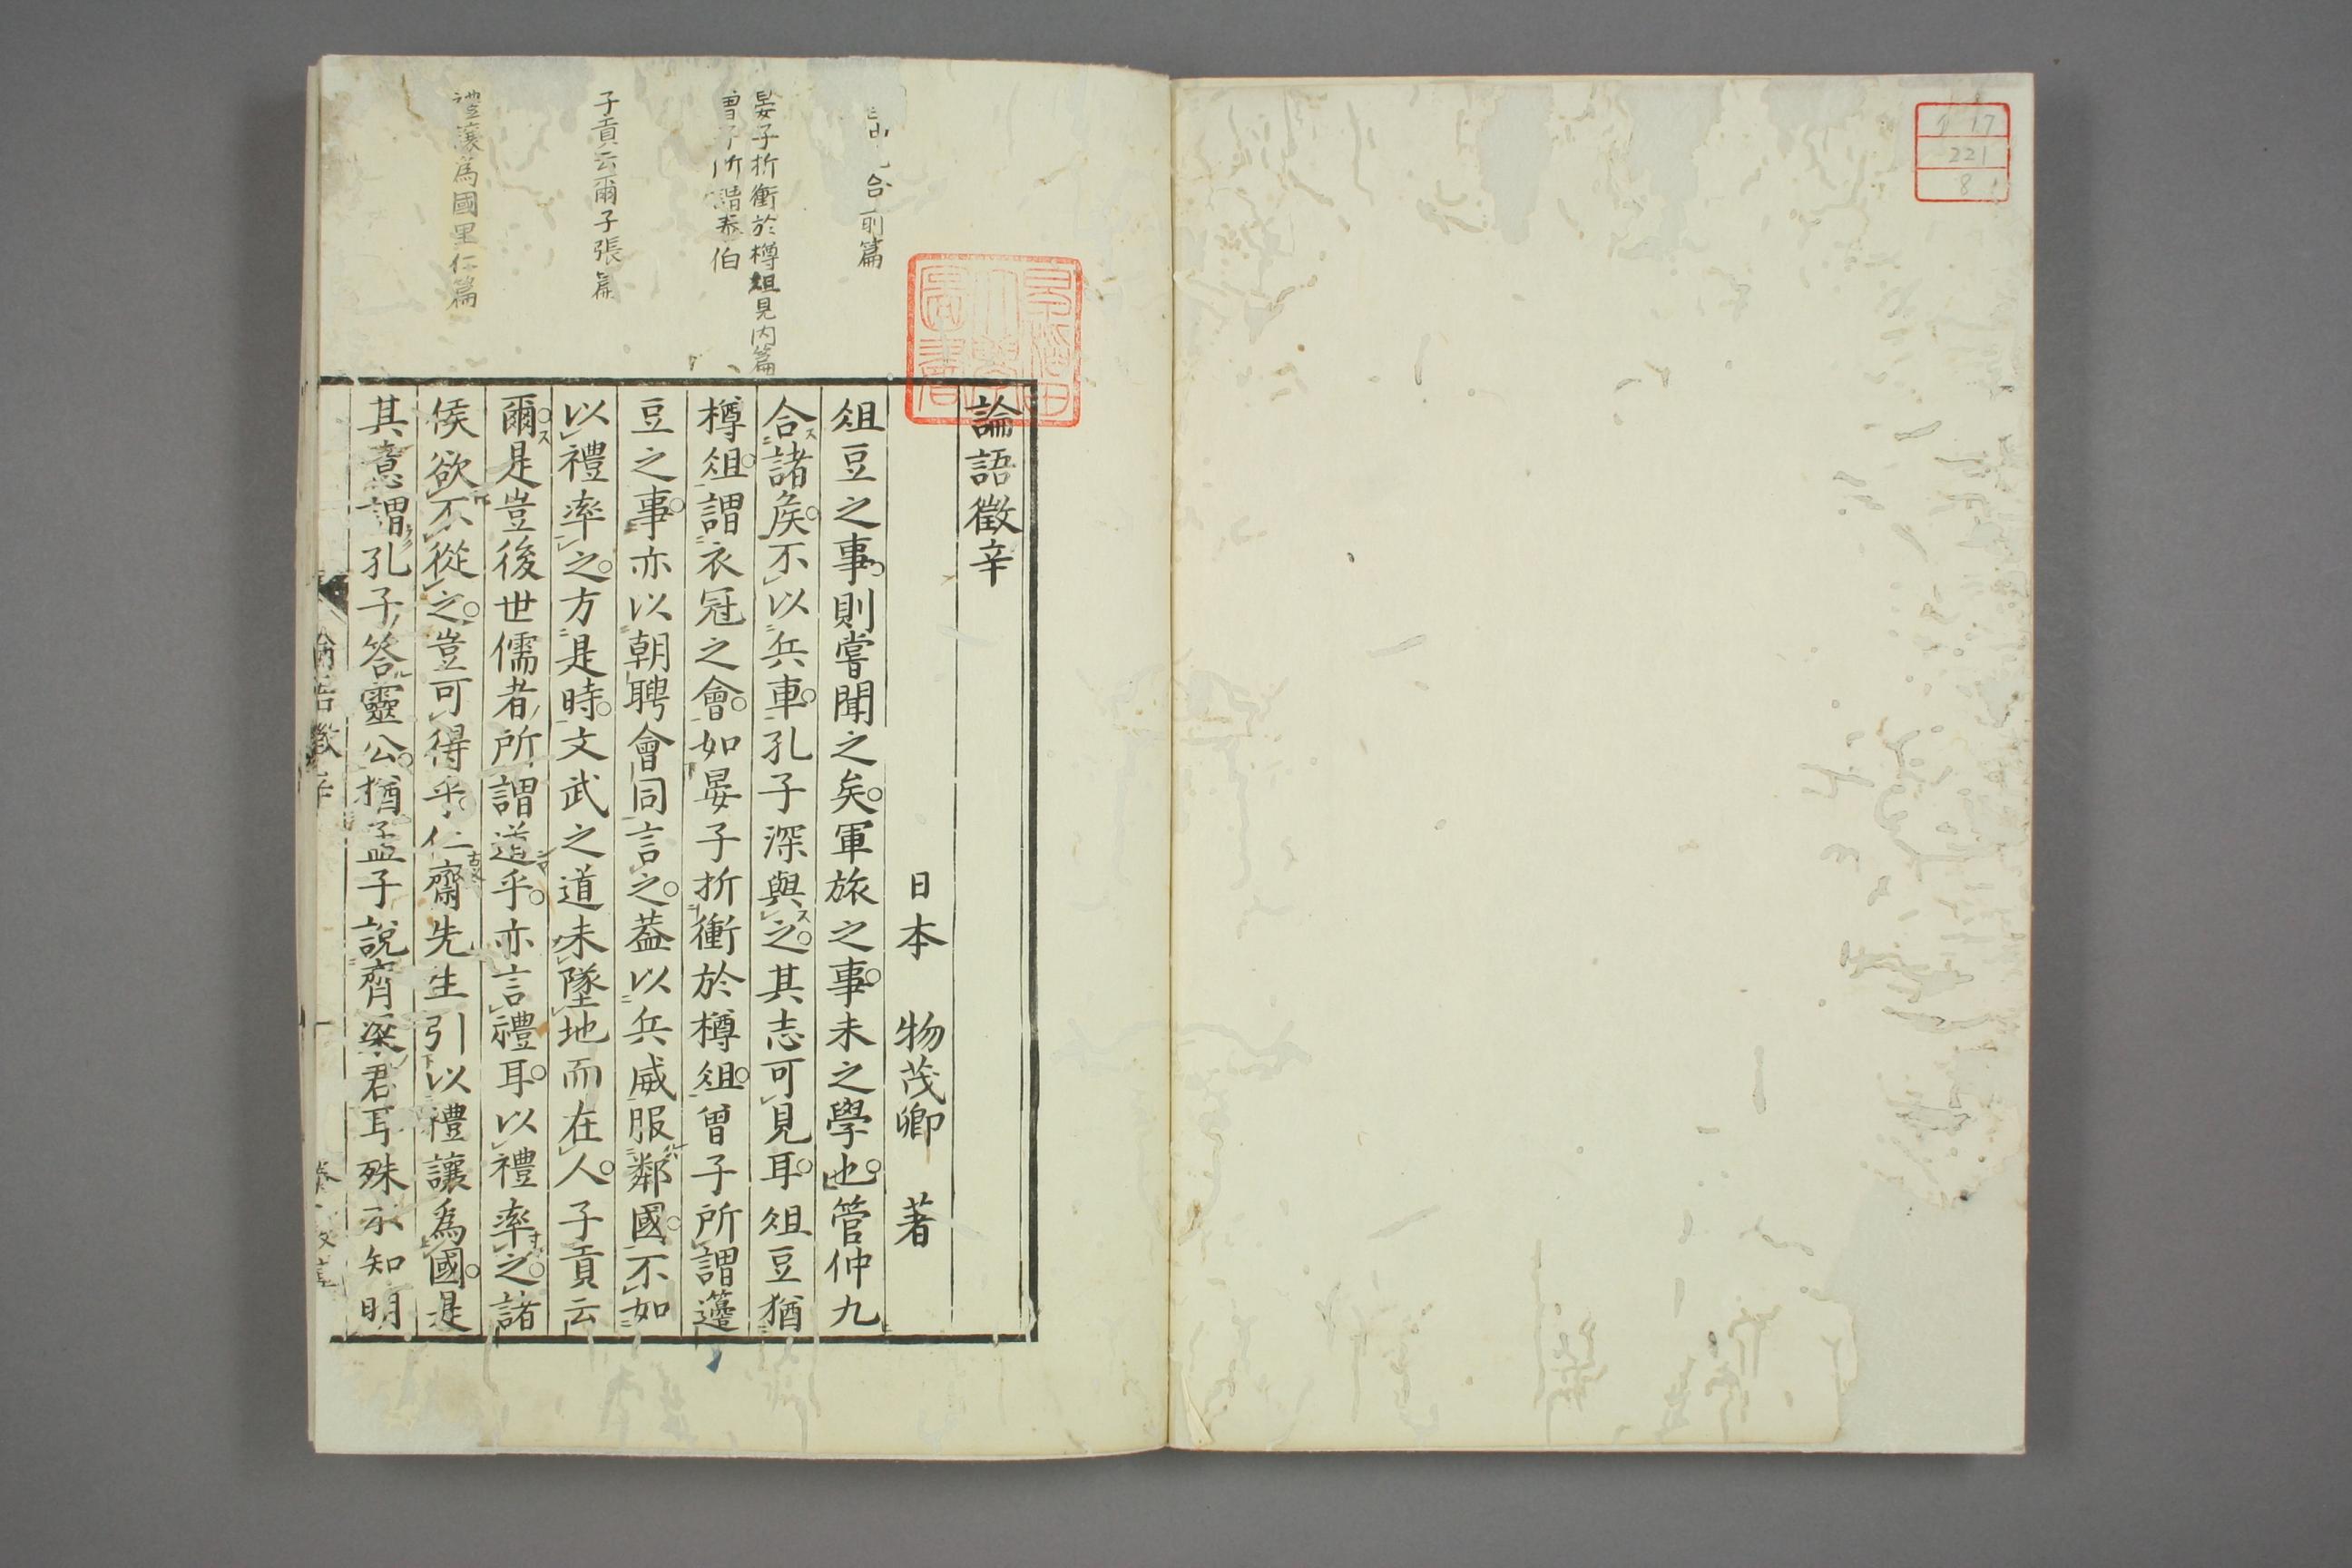 論語徵辛
日本 物茂卿 著
俎豆之事則嘗聞之矣軍旅之事未之學也管仲九
合諸矦不以兵車孔子深與之其志可見耳俎豆猶
樽俎謂衣冠之會如晏子折衝於樽俎曾子所謂籩
豆之事亦以朝聘會同言之葢以兵威服鄰國不如
以禮率之方是時文武之道未墜地而在人子貢云
爾是豈後世儒者所謂道乎亦言禮耳以禮率之諸
侯欲不從之豈可得乎仁齋先生引以禮讓爲國是
其意謂孔子答靈公猶孟子說齊梁君耳殊不知明
合前篇
晏子折衝於樽俎見内篇
曾子所謂泰伯
子貢云爾子張篇
禮讓爲國里仁篇
早稲田大學圖書
17
221
8
論語徵辛 一